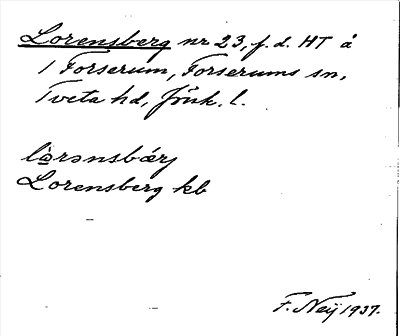 Lorensberg nr 23, f. d. HT å
1 Forserum, Forserums sn,
Tveta hd, Jönk. l.
lòrənsbárj
Lorensberg kb
F. Neij 1937.